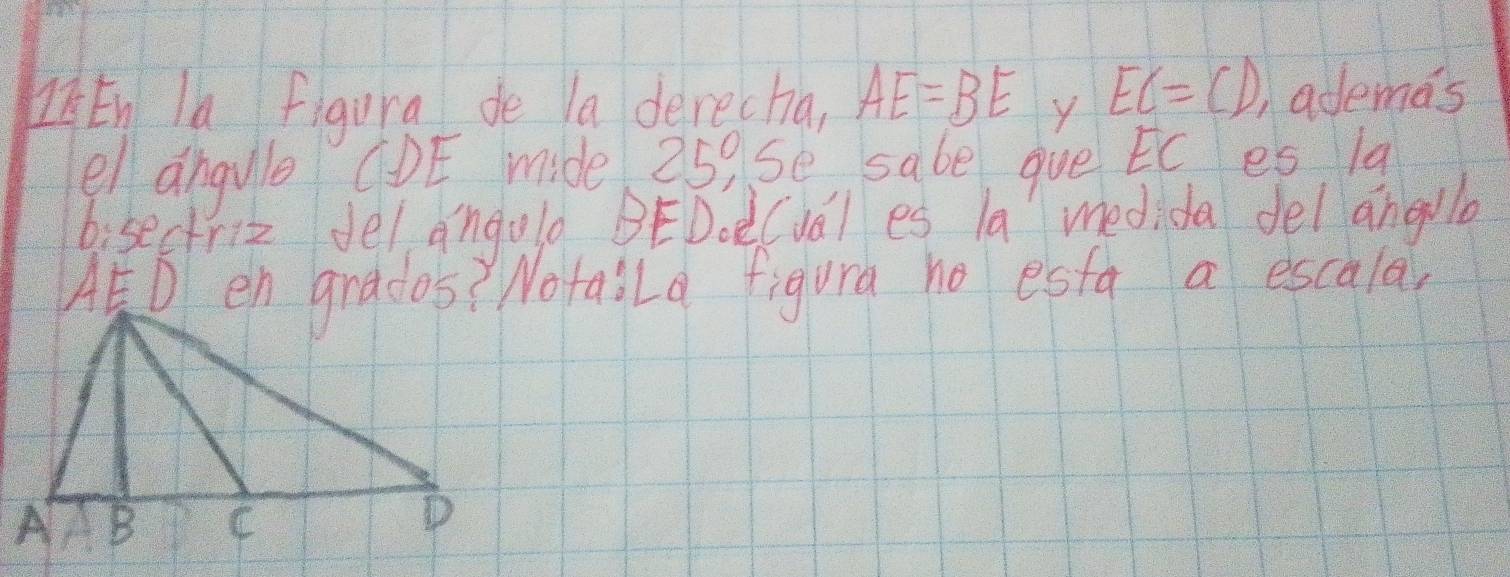 En la Figura de la derecha, AE=BE y EC=CD, además
el ángulo CDE mide 25°, Se sabe que EC es la
bisectriz del ángulo BED.¿Cuál es la medida del ángulo
AED en grados? Nota:La figura no esta a escala.
A B C D